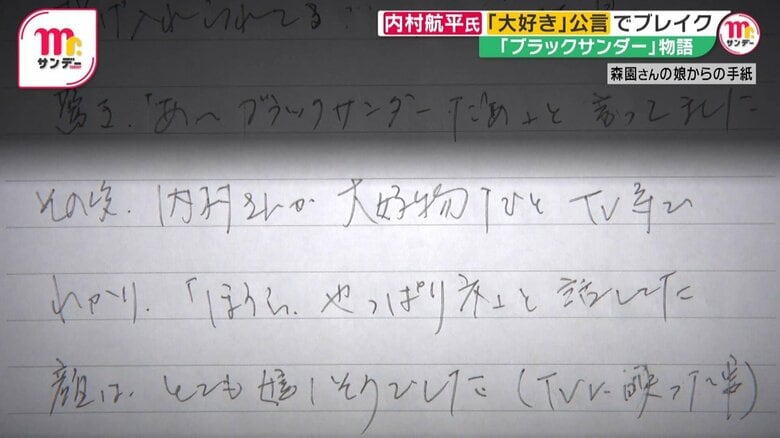 Mr.サンデー
内村航平氏「大好き」公言でブレイク
「ブラックサンダー」物語
森園さんの娘からの手紙
げ入れられてる
「あ〜ブラックサンダーだぁ」と言ってました
その後、内村さんが大好物だと TV
わかり、「ほら、やっぱりネ」と話してた
顔は、とても嬉しそうでした(TVに映った事)